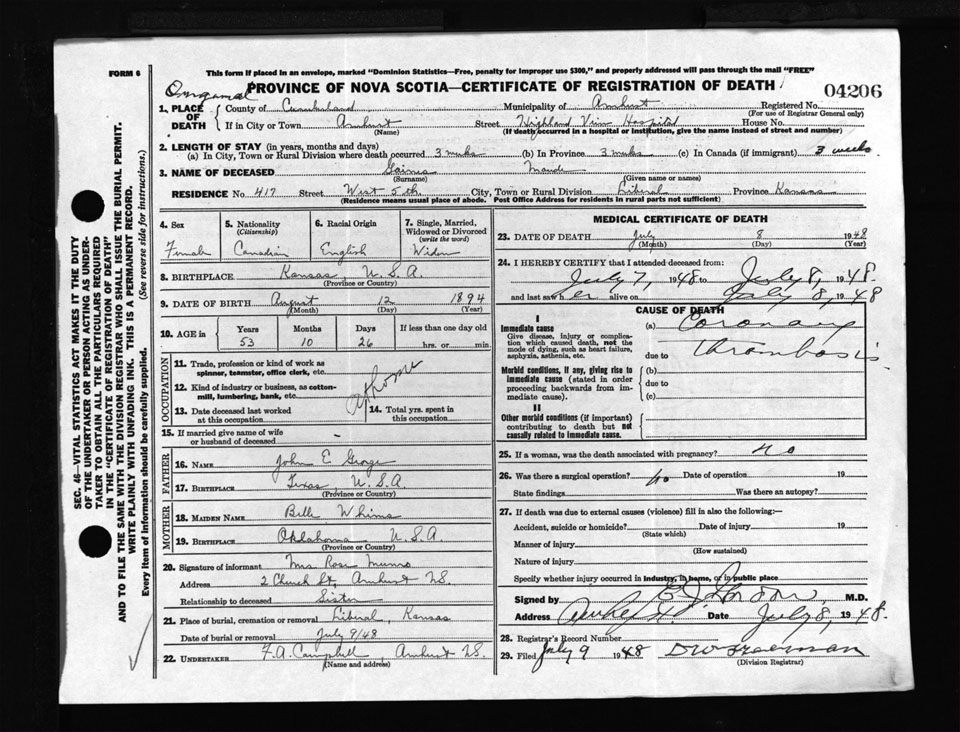 FORM 6
This form if placed in an envelope, marked "Dominion Statistics—Free, penalty for improper use $300," and properly addressed will pass through the mail "FREE"
Original
PROVINCE OF NOVA SCOTIA—CERTIFICATE OF REGISTRATION OF DEATH
04206
1. PLACE OF DEATH
County of Cumberland Municipality of Amherst Registered No.
(For use of Registrar General only)
If in City or Town Amherst Street Highland View Hospital House No.
(Name) (If death occurred in a hospital or institution, give the name instead of street and number)
2. LENGTH OF STAY (in years, months and days)
(a) In City, Town or Rural Division where death occurred 3 weeks (b) In Province 3 weeks (c) In Canada (if immigrant) 3 weeks
3. NAME OF DECEASED Maude
(Surname) (Given name or names)
RESIDENCE No. 417 Street West 5th City, Town or Rural Division Liberal Province Kansas
(Residence means usual place of abode. Post Office Address for residents in rural parts not sufficient)
4. Sex
Female
5. Nationality
(Citizenship)
Canadian
6. Racial Origin
English
7. Single, Married, Widowed or Divorced
(write the word)
Widow
8. BIRTHPLACE Kansas, U.S.A.
(Province or Country)
9. DATE OF BIRTH August 12 1894
(Month) (Day) (Year)
10. AGE in
Years Months Days If less than one day old
53 10 26 hrs. or min.
OCCUPATION
11. Trade, profession or kind of work as spinner, teamster, office clerk, etc.
12. Kind of industry or business, as cotton-mill, lumbering, bank, etc.
at home
13. Date deceased last worked at this occupation
14. Total yrs. spent in this occupation
15. If married give name of wife or husband of deceased -
FATHER
16. NAME John E George
17. BIRTHPLACE Texas, U.S.A
(Province or Country)
MOTHER
18. MAIDEN NAME Belle Whims
19. BIRTHPLACE Oklahoma U.S.A
(Province or Country)
20. Signature of informant Mrs Rose Munro
Address 2 Church St, Amherst NS.
Relationship to deceased Sister
21. Place of burial, cremation or removal Liberal, Kansas
Date of burial or removal July 9/48
22. UNDERTAKER F.A. Campbell, Amherst NS.
(Name and address)
MEDICAL CERTIFICATE OF DEATH
23. DATE OF DEATH July 8 1948
(Month) (Day) (Year)
24. I HEREBY CERTIFY that I attended deceased from:
July 7, 1948 to July 8, 1948.
and last saw her alive on July 8, 1948
CAUSE OF DEATH
I
Immediate cause
Give disease, injury or complication which caused death, not the mode of dying, such as heart failure, asphyxia, asthenia, etc.
(a) Coronary
due to thrombosis
Morbid conditions, if any, giving rise to immediate cause (stated in order proceeding backwards from immediate cause).
(b)
due to
(c)
II
Other morbid conditions (if important) contributing to death but not causally related to immediate cause.
25. If a woman, was the death associated with pregnancy? no
26. Was there a surgical operation? no Date of operation 19
State findings Was there an autopsy?
27. If death was due to external causes (violence) fill in also the following:—
Accident, suicide or homicide? Date of injury 19
(State which)
Manner of injury
(How sustained)
Nature of injury
Specify whether injury occurred in industry, in home, or in public place
Signed by M.D.
Address Date July 8, 1948.
28. Registrar's Record Number
29. Filed July 9 1948
(Division Registrar)
SEC. 46—VITAL STATISTICS ACT MAKES IT THE DUTY
OF THE UNDERTAKER OR PERSON ACTING AS UNDER-
TAKER TO OBTAIN ALL THE PARTICULARS REQUIRED
IN THE "CERTIFICATE OF REGISTRATION OF DEATH"
AND TO FILE THE SAME WITH THE DIVISION REGISTRAR WHO SHALL ISSUE THE BURIAL PERMIT.
WRITE PLAINLY WITH UNFADING INK. THIS IS A PERMANENT RECORD.
Every item of information should be carefully supplied. (See reverse side for instructions.)